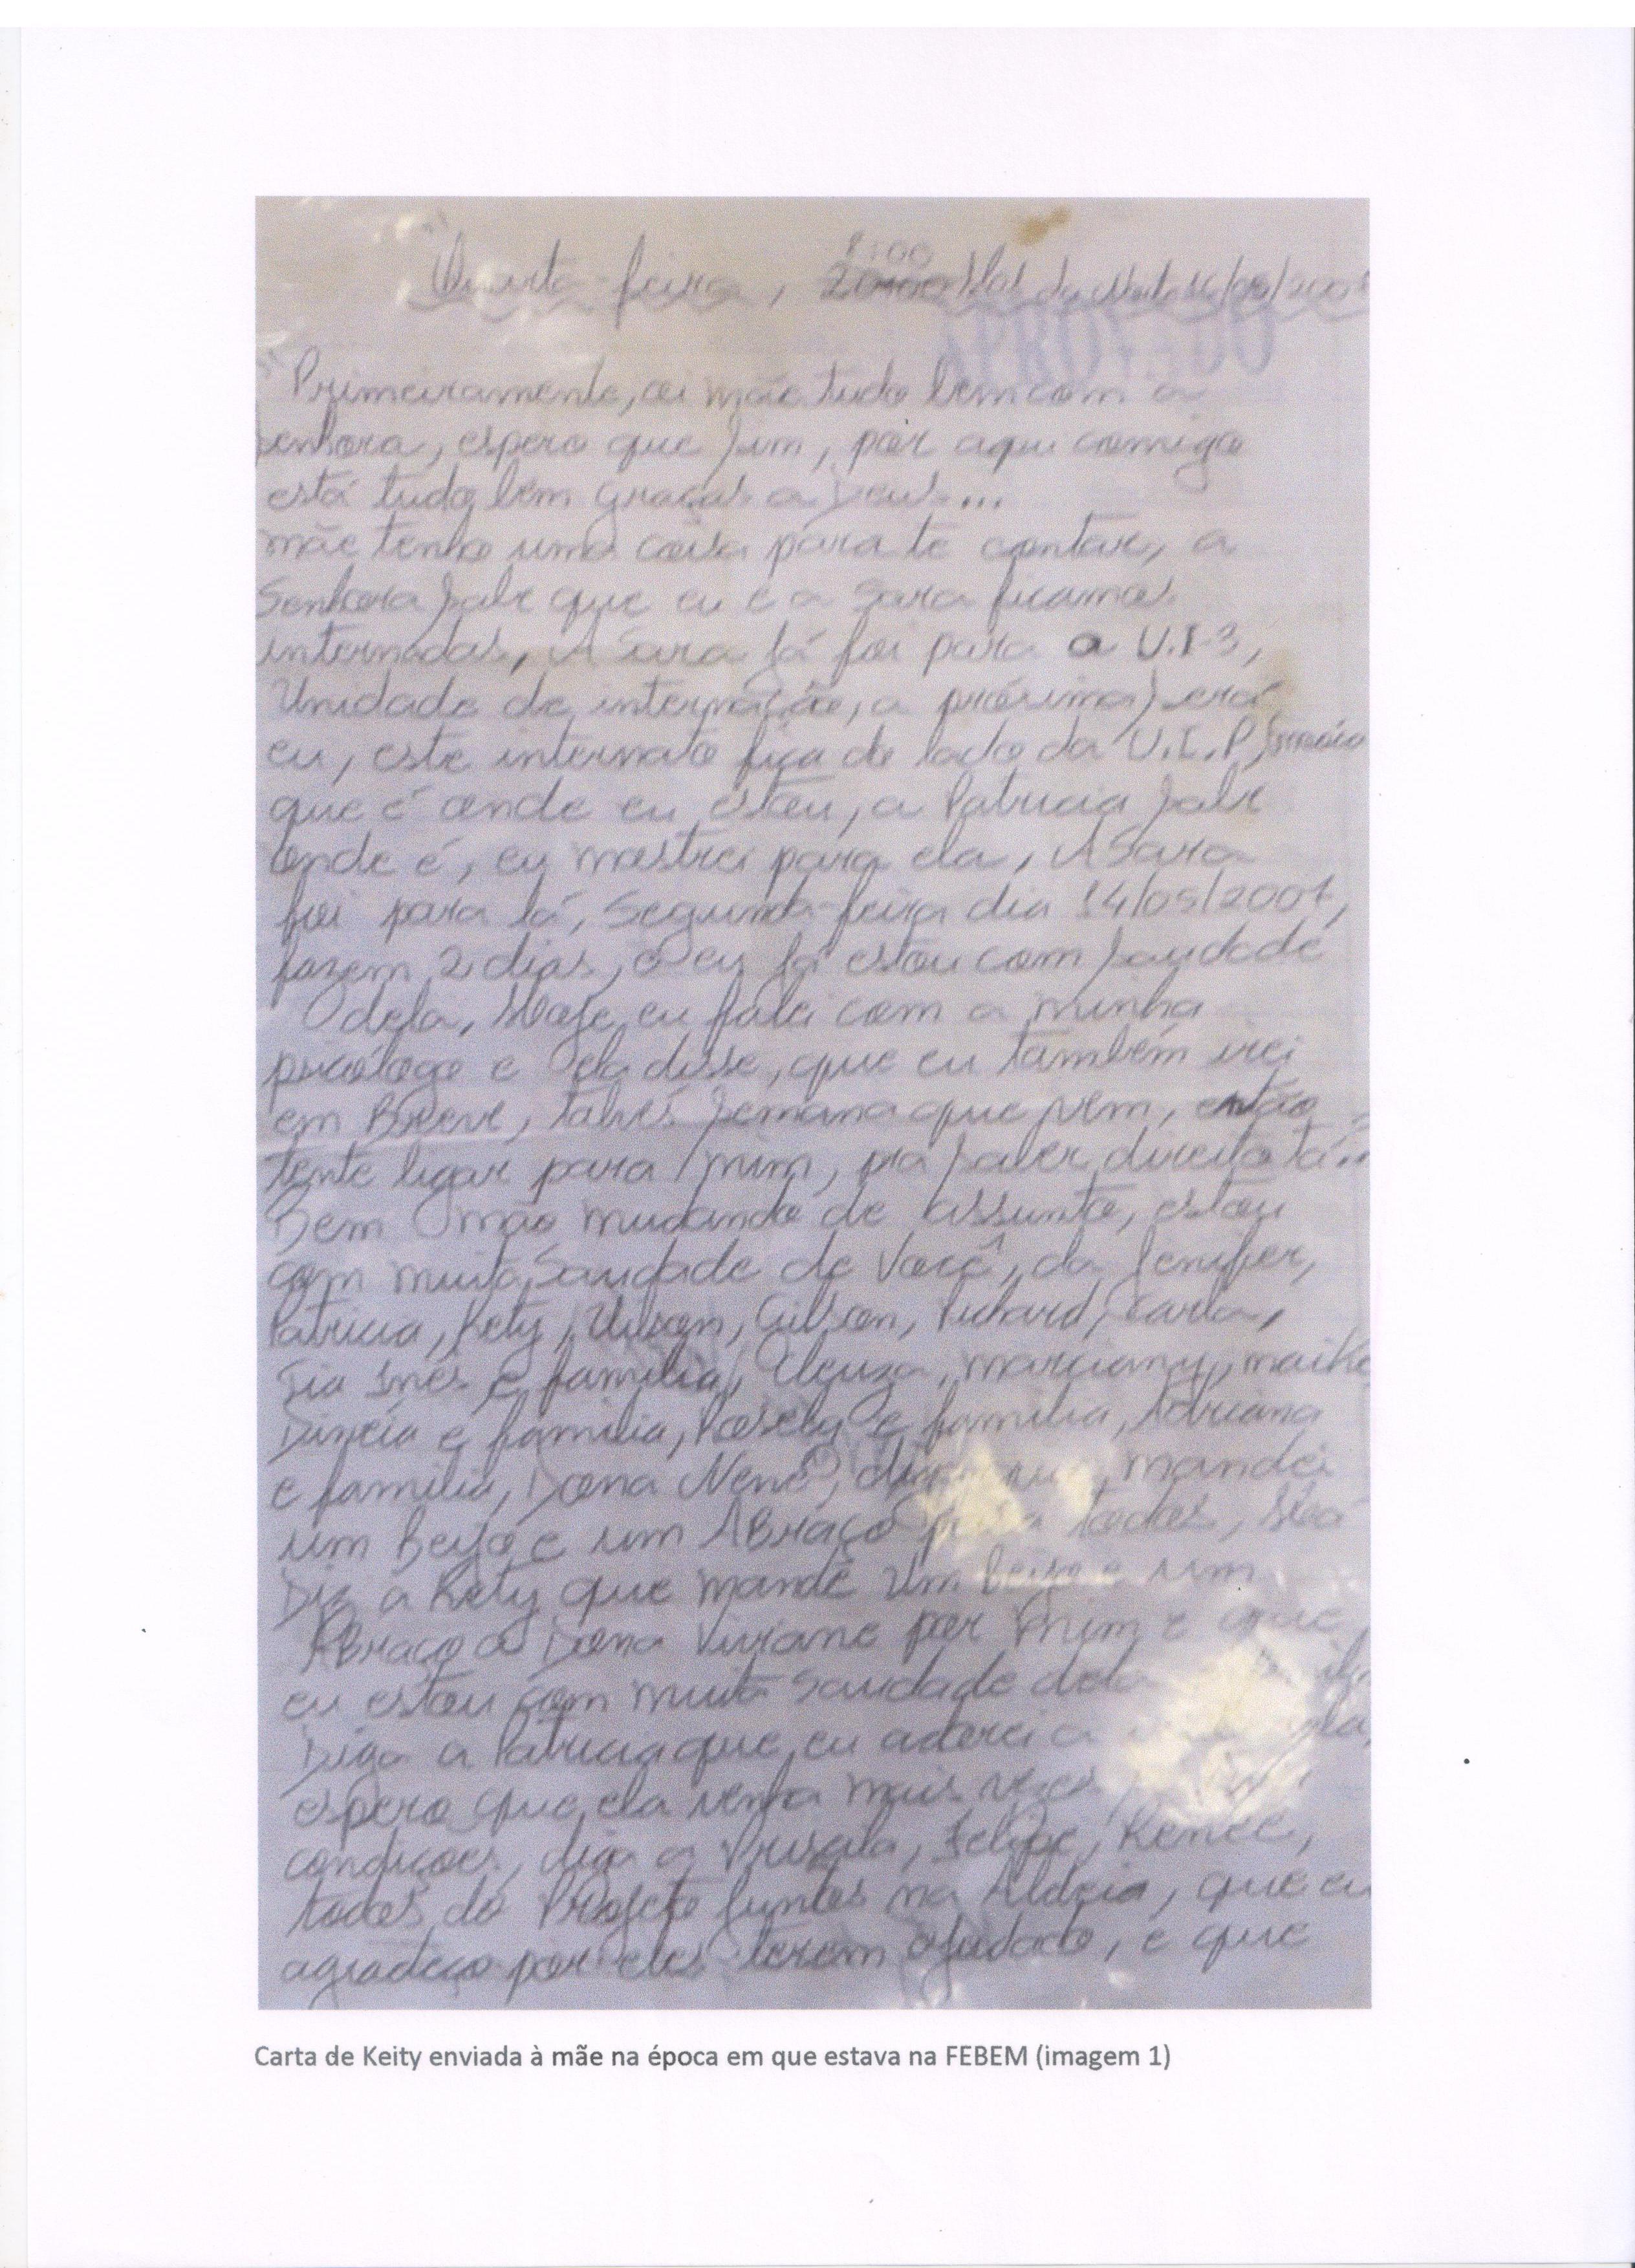 Quarta-feira, 8:00 Hrs da Noite 16/05/200
APROVADO
Primeiramente, oi mãe tudo bem com a
senhora, espero que sim, por aqui comigo
está tudo bem graças a Deus...
mãe tenho uma coisa para te contar, a
Senhora sabe que eu e a Sara ficamos
internadas, A Sara já foi para a U.I-3,
Unidade de internação, a próxima serei
eu, este internato fica do lado da U.I.P,
que é onde eu estou, a Patricia sabe
onde é, eu mostrei para ela, A Sara
foi para lá, Segunda-feira dia 14/05/2001,
fazem 2 dias, e eu já estou com saudade
dela, Hoje eu falei com a minha
psicóloga e ela disse, que eu também irei
em Breve, talvés semana que vem, então
tente ligar para mim, pra saber direito tá..
Bem mãe mudando de assunto, estou
com muita Saudade de Você, da Jenifer,
Patricia, Kety, Wilson, Gilson, Richard, Carla,
Tia Inês e familia, Cleuza, marciany, maike
Dirceia e familia, Rosely e familia, Adriana
e familia, Dona Nenê, mandei
um Beijo e um ABraço para todos,
Diz a Kety que mande um beijo e um
ABraço a Dona Viviane por mim e que
eu estou com muita Saudade dela
Diga a Patricia que eu adorei a
espero que ela venha mais vezes
condições, diga a Priscila, Felipe, Renee,
todos do Projeto Juntos na Aldeia, que eu
agradeço por eles terem ajudado, e que
Carta de Keity enviada à mãe na época em que estava na FEBEM (imagem 1)